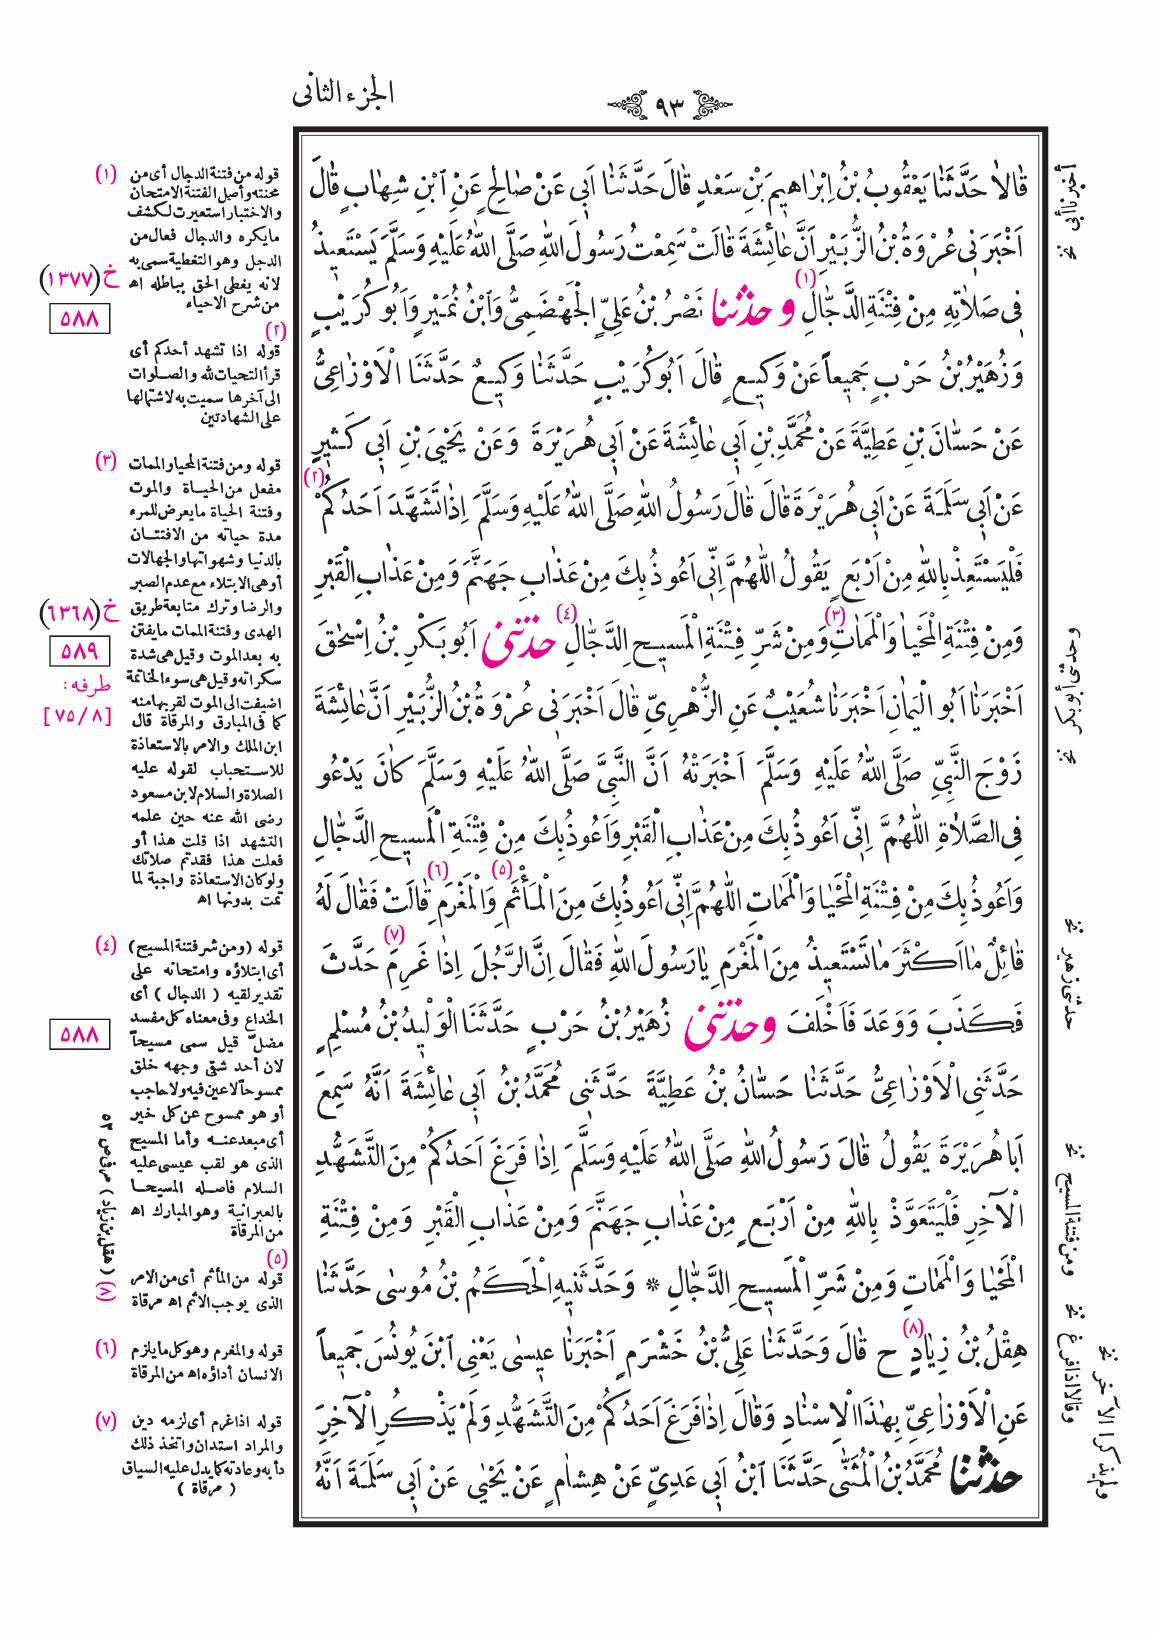 الجزء الثانى
٩٣
قَالَا حَدَّثَنَا يَعْقُوبُ بْنُ اِبْرَاهِيمَ بْنِ سَعْدٍ قَالَ حَدَّثَنَا اَبِي عَنْ صَالِحٍ عَنِ ابْنِ شِهَابٍ قَالَ
اَخْبَرَنِي عُرْوَةُ بْنُ الزُّبَيْرِ اَنَّ عَائِشَةَ قَالَتْ سَمِعْتُ رَسُولَ اللهِ صَلَّى اللهُ عَلَيْهِ وَسَلَّمَ يَسْتَعِيذُ
فِي صَلَاتِهِ مِنْ فِتْنَةِ الدَّجَّالِ (١) وحدثنا نَصْرُ بْنُ عَلِيٍّ الْجَهْضَمِيُّ وَابْنُ نُمَيْرٍ وَاَبُو كُرَيْبٍ
وَزُهَيْرُ بْنُ حَرْبٍ جَمِيعاً عَنْ وَكِيعٍ قَالَ اَبُو كُرَيْبٍ حَدَّثَنَا وَكِيعٌ حَدَّثَنَا الْاَوْزَاعِيُّ
عَنْ حَسَّانَ بْنِ عَطِيَّةَ عَنْ مُحَمَّدِ بْنِ اَبِي عَائِشَةَ عَنْ اَبِي هُرَيْرَةَ وَعَنْ يَحْيَى بْنِ اَبِي كَثِيرٍ
عَنْ اَبِي سَلَمَةَ عَنْ اَبِي هُرَيْرَةَ قَالَ قَالَ رَسُولُ اللهِ صَلَّى اللهُ عَلَيْهِ وَسَلَّمَ اِذَا تَشَهَّدَ اَحَدُكُمْ (٢)
فَلْيَسْتَعِذْ بِاللهِ مِنْ اَرْبَعٍ يَقُولُ اللَّهُمَّ اِنِّي اَعُوذُ بِكَ مِنْ عَذَابِ جَهَنَّمَ وَمِنْ عَذَابِ الْقَبْرِ
وَمِنْ فِتْنَةِ الْمَحْيَا وَالْمَمَاتِ (٣) وَمِنْ شَرِّ فِتْنَةِ الْمَسِيحِ الدَّجَّالِ (٤) حدثنى اَبُو بَكْرِ بْنُ اِسْحٰقَ
اَخْبَرَنَا اَبُو الْيَمَانِ اَخْبَرَنَا شُعَيْبٌ عَنِ الزُّهْرِيِّ قَالَ اَخْبَرَنِي عُرْوَةُ بْنُ الزُّبَيْرِ اَنَّ عَائِشَةَ
زَوْجَ النَّبِيِّ صَلَّى اللهُ عَلَيْهِ وَسَلَّمَ اَخْبَرَتْهُ اَنَّ النَّبِيَّ صَلَّى اللهُ عَلَيْهِ وَسَلَّمَ كَانَ يَدْعُو
فِي الصَّلَاةِ اللَّهُمَّ اِنِّي اَعُوذُ بِكَ مِنْ عَذَابِ الْقَبْرِ وَاَعُوذُ بِكَ مِنْ فِتْنَةِ الْمَسِيحِ الدَّجَّالِ
وَاَعُوذُ بِكَ مِنْ فِتْنَةِ الْمَحْيَا وَالْمَمَاتِ اللَّهُمَّ اِنِّي اَعُوذُ بِكَ مِنَ الْمَأْثَمِ (٥) وَالْمَغْرَمِ (٦) قَالَتْ فَقَالَ لَهُ
قَائِلٌ مَا اَكْثَرَ مَا تَسْتَعِيذُ مِنَ الْمَغْرَمِ يَا رَسُولَ اللهِ فَقَالَ اِنَّ الرَّجُلَ اِذَا غَرِمَ (٧) حَدَّثَ
فَكَذَبَ وَوَعَدَ فَاَخْلَفَ وحدثنى زُهَيْرُ بْنُ حَرْبٍ حَدَّثَنَا الْوَلِيدُ بْنُ مُسْلِمٍ
حَدَّثَنِي الْاَوْزَاعِيُّ حَدَّثَنَا حَسَّانُ بْنُ عَطِيَّةَ حَدَّثَنِي مُحَمَّدُ بْنُ اَبِي عَائِشَةَ اَنَّهُ سَمِعَ
اَبَا هُرَيْرَةَ يَقُولُ قَالَ رَسُولُ اللهِ صَلَّى اللهُ عَلَيْهِ وَسَلَّمَ اِذَا فَرَغَ اَحَدُكُمْ مِنَ التَّشَهُّدِ
الْآخِرِ فَلْيَتَعَوَّذْ بِاللهِ مِنْ اَرْبَعٍ مِنْ عَذَابِ جَهَنَّمَ وَمِنْ عَذَابِ الْقَبْرِ وَمِنْ فِتْنَةِ
الْمَحْيَا وَالْمَمَاتِ وَمِنْ شَرِّ الْمَسِيحِ الدَّجَّالِ * وَحَدَّثَنِيهِ الْحَكَمُ بْنُ مُوسَى حَدَّثَنَا
هِقْلُ بْنُ زِيَادٍ (٨) ح قَالَ وَحَدَّثَنَا عَلِيُّ بْنُ خَشْرَمٍ اَخْبَرَنَا عِيسَى يَعْنِي ابْنَ يُونُسَ جَمِيعاً
عَنِ الْاَوْزَاعِيِّ بِهٰذَا الْاِسْنَادِ وَقَالَ اِذَا فَرَغَ اَحَدُكُمْ مِنَ التَّشَهُّدِ وَلَمْ يَذْكُرِ الْآخِرَ
حدثنا مُحَمَّدُ بْنُ الْمُثَنَّى حَدَّثَنَا ابْنُ اَبِي عَدِيٍّ عَنْ هِشَامٍ عَنْ يَحْيَى عَنْ اَبِي سَلَمَةَ اَنَّهُ
أخبرنا أبى نخ
وحدثنى أبو بكر نخ
حدثنى زهير نخ
ومن فتنة المسيح نخ
وقالا اذا فرغ نخ
ولم يذكرا الآخر نخ
(١) قوله من فتنة الدجال أى من
محنته وأصل الفتنة الامتحان
والاختبار استعيرت لكشف
ما يكره والدجال فعال من
الدجل وهو التغطية سمى به
لانه يغطى الحق بباطله اھ
من شرح الاحياء
خ (١٣٧٧)
٥٨٨
(٢)
قوله اذا تشهد أحدكم أى
قرأ التحيات لله والصلوات
الى آخرها سميت به لاشتمالها
على الشهادتين
(٣) قوله ومن فتنة المحيا والممات
مفعل من الحياة والموت
وفتنة الحياة ما يعرض للمرء
مدة حياته من الافتتان
بالدنيا وشهواتها والجهالات
أو هى الابتلاء مع عدم الصبر
والرضا وترك متابعة طريق
الهدى وفتنة الممات ما يفتن
به بعد الموت وقيل هى شدة
سكراته وقيل هى سوء الخاتمة
اضيفت الى الموت لقربها منه
كما فى المبارق والمرقاة قال
ابن الملك والامر بالاستعاذة
للاستحباب لقوله عليه
الصلاة والسلام لابن مسعود
رضى الله عنه حين علمه
التشهد اذا قلت هذا أو
فعلت هذا فقد تم صلاتك
ولو كان الاستعاذة واجبة لما
تمت بدونها اھ
خ (٦٣٦٨)
٥٨٩
طرفه :
[ ٧٥/٨ ]
(٤) قوله (ومن شر فتنة المسيح)
أى ابتلاؤه وامتحانه على
تقدير لقيه (الدجال) أى
الخداع وفى معناه كل مفسد
مضلّ قيل سمى مسيحاً
لان أحد شقى وجهه خلق
ممسوحاً لا عين فيه ولا حاجب
أو هو ممسوح عن كل خير
أى مبعد عنه وأما المسيح
الذى هو لقب عيسى عليه
السلام فاصله المسيحا
بالعبرانية وهو المبارك اھ
من المرقاة
٥٨٨
(٥)
قوله من المأثم أى من الامر
الذى يوجب الأثم اھ مرقاة
(٦) قوله والمغرم وهو كل ما يلزم
الانسان أداؤه اھ من المرقاة
(٧) قوله اذا غرم أى لزمه دين
والمراد استدان واتخذ ذلك
دأبه وعادته كما يدل عليه السياق
( مرقاة )
(٨) (هقل بن زياد) مر فى ص ٥٢